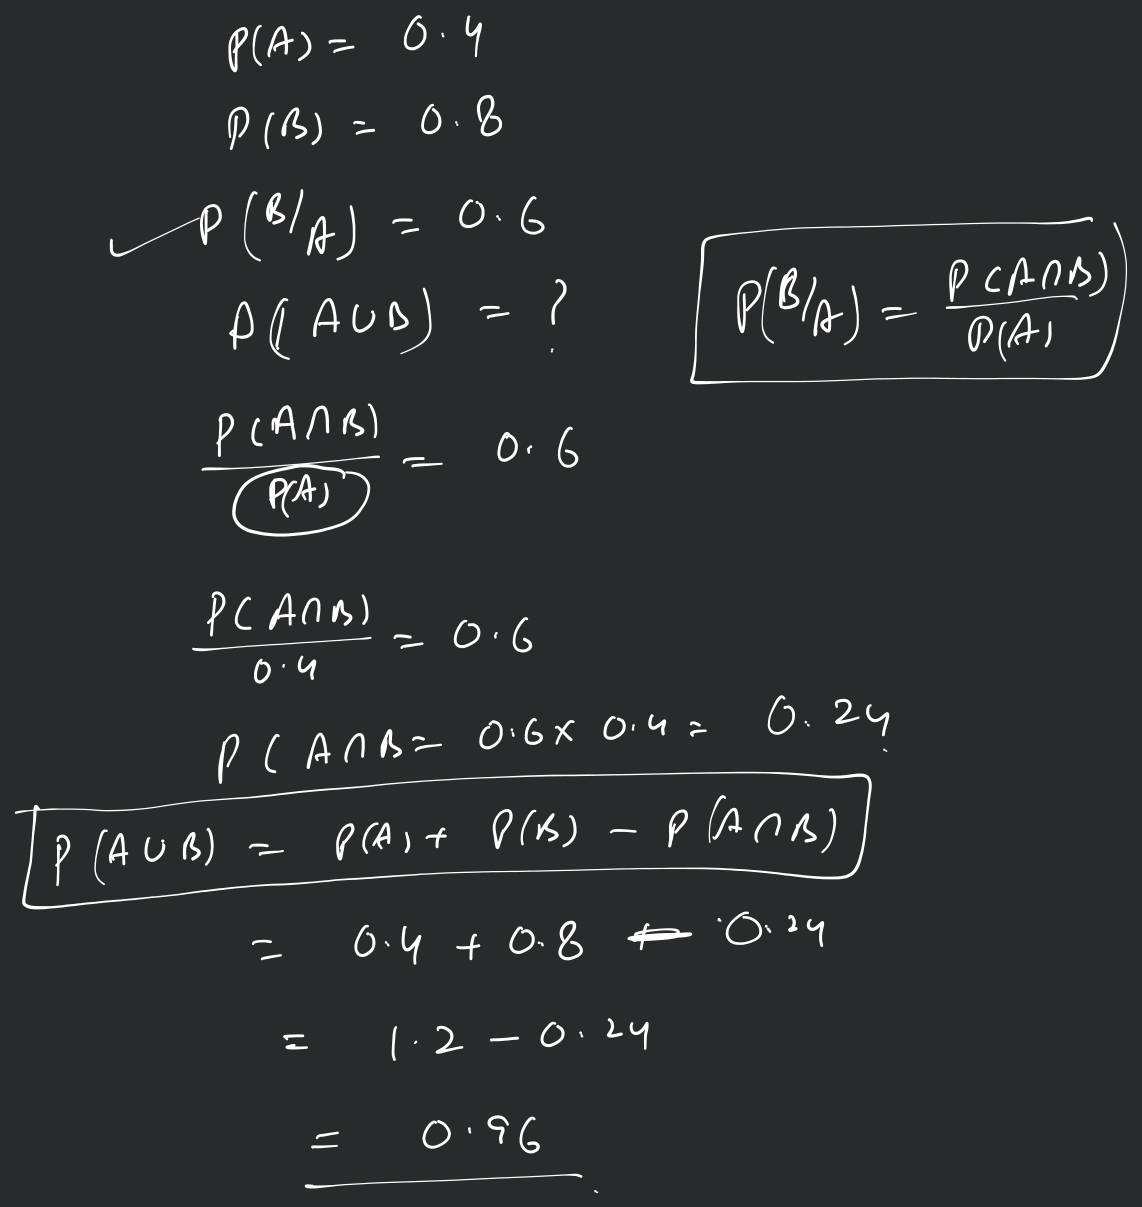 P(A) = 0.4
P(B) = 0.8
P(B/A) = 0.6
P(A∪B) = ?
P(B/A) = P(A∩B)/P(A)
P(A∩B)/P(A) = 0.6
P(A∩B)/0.4 = 0.6
P(A∩B = 0.6 x 0.4 = 0.24
P(A∪B) = P(A) + P(B) - P(A∩B)
= 0.4 + 0.8 - 0.24
= 1.2 - 0.24
= 0.96